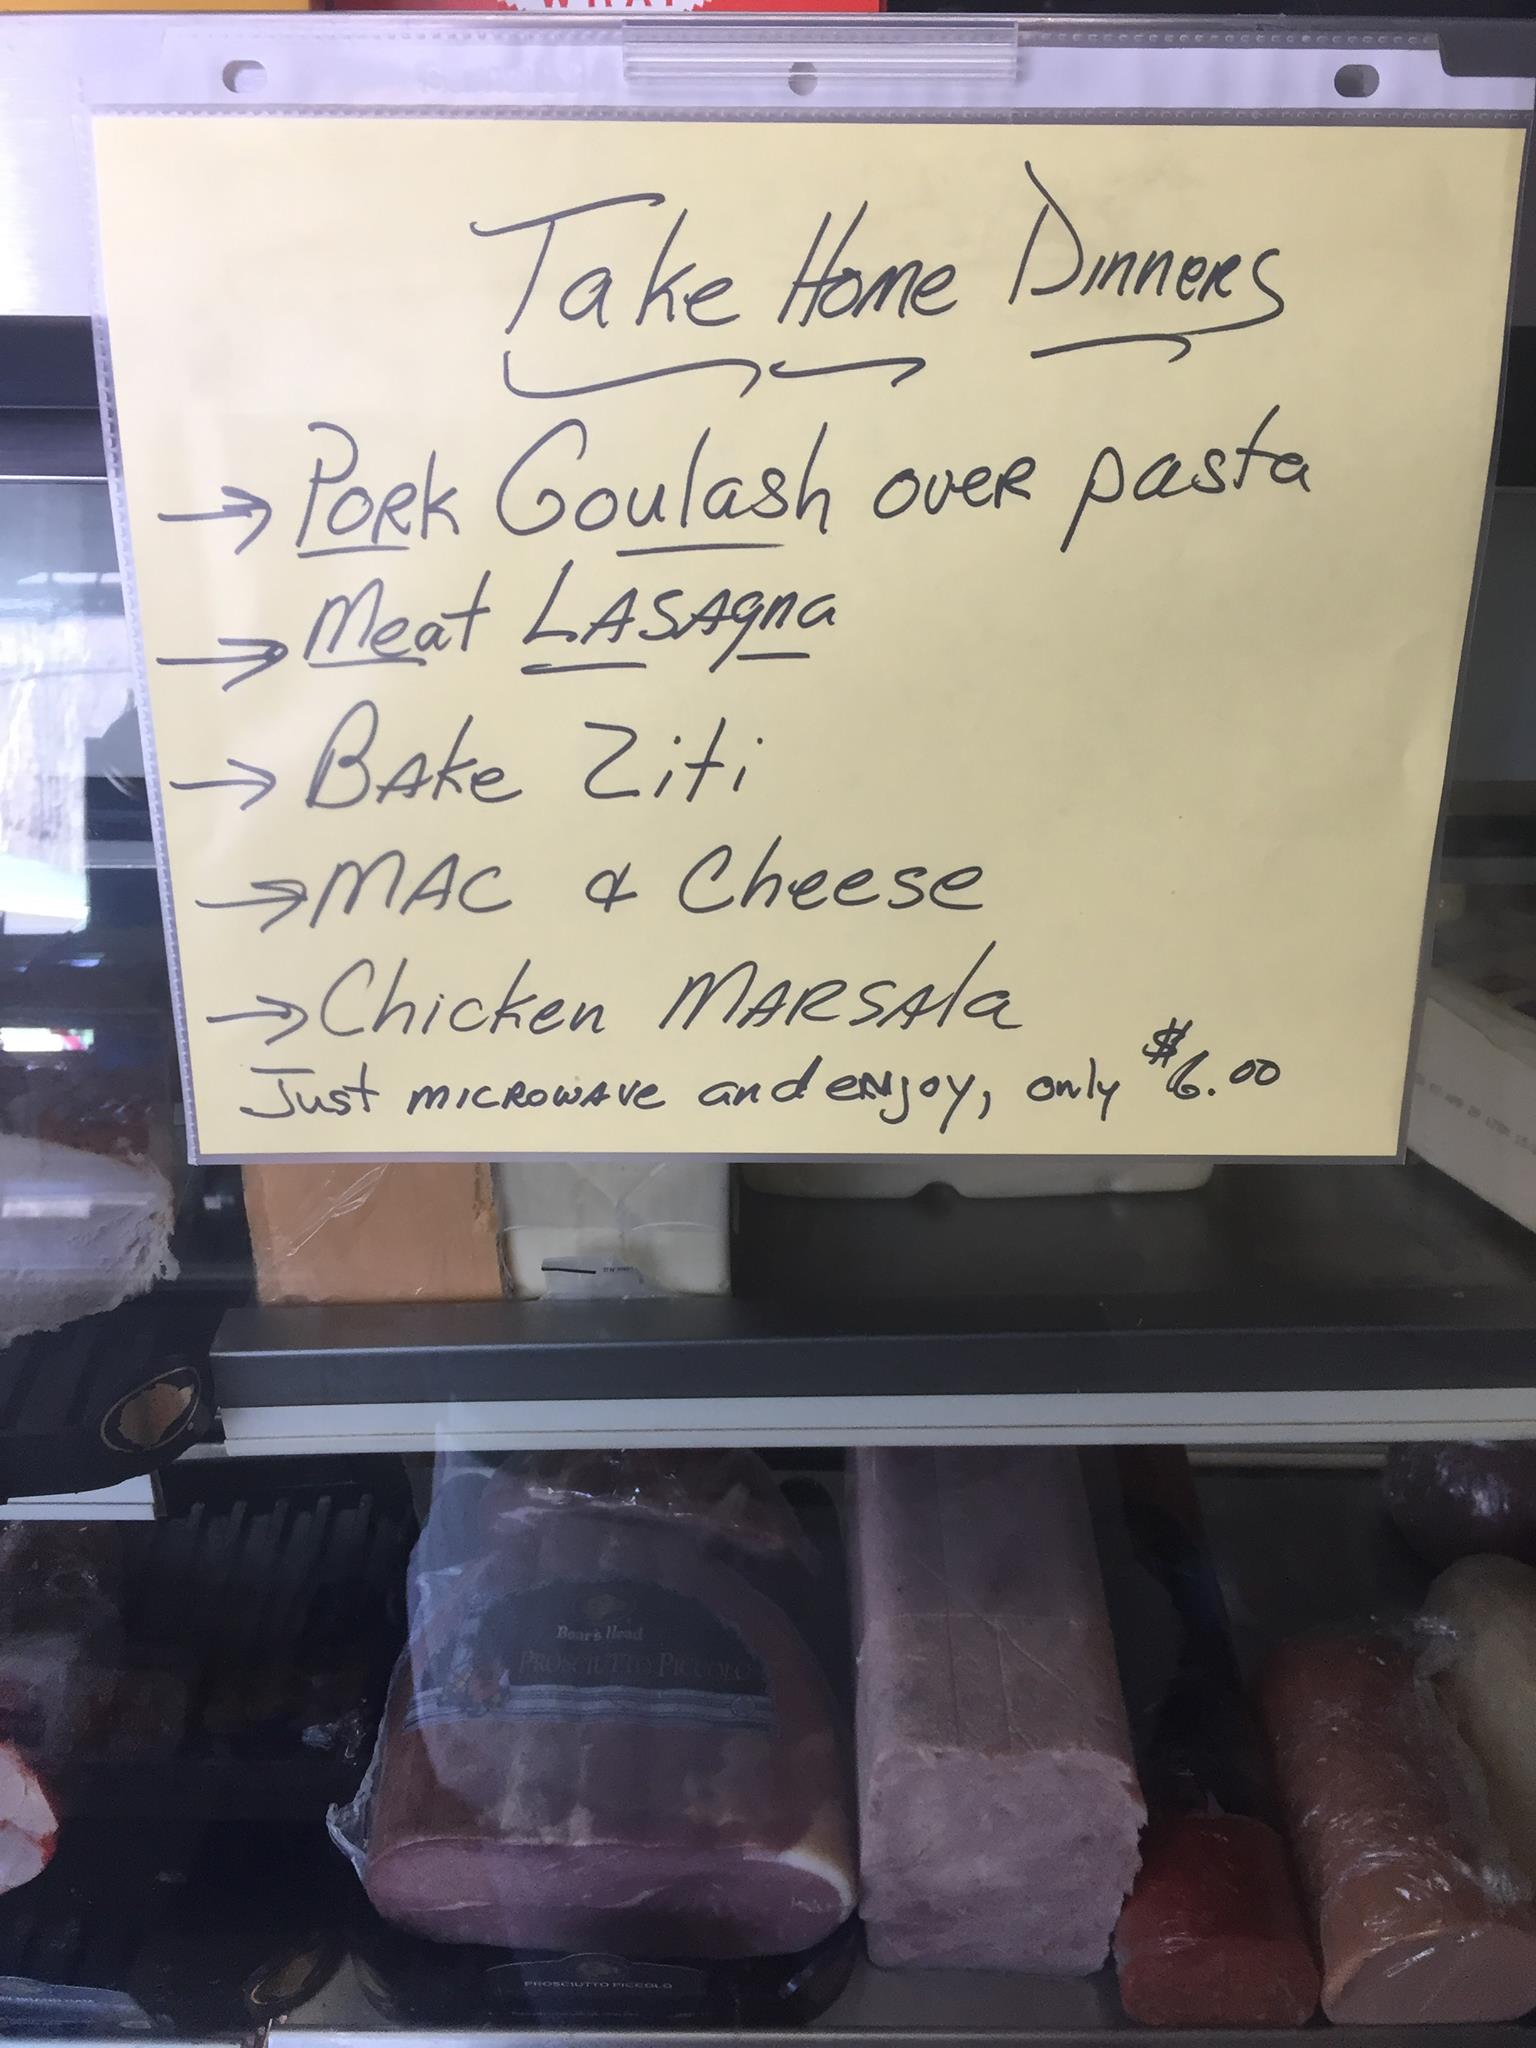 WRAP
Take Home Dinners
→ Pork Goulash over pasta
→ Meat LASAgna
→ BAke Ziti
→ MAC & Cheese
→ Chicken MARSAla
Just MICROWAVE and ENjoy, only $6.00
Boar's Head
PROSCIUTTO PICCOLO
PROSCIUTTO PICCOLO